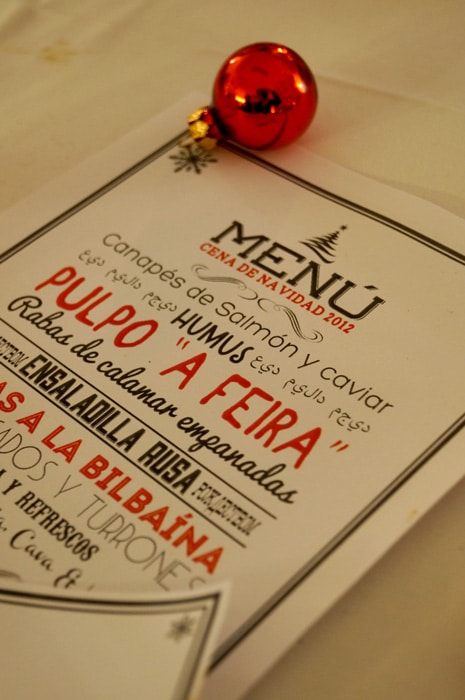 MENÚ
CENA DE NAVIDAD 2012
Canapés de Salmón y caviar
HUMUS
PULPO "A FEIRA"
Rabas de calamar empanadas
ENSALADILLA RUSA
AS A LA BILBAÍNA
ADOS Y TURRONES
A Y REFRESCOS
Cava &